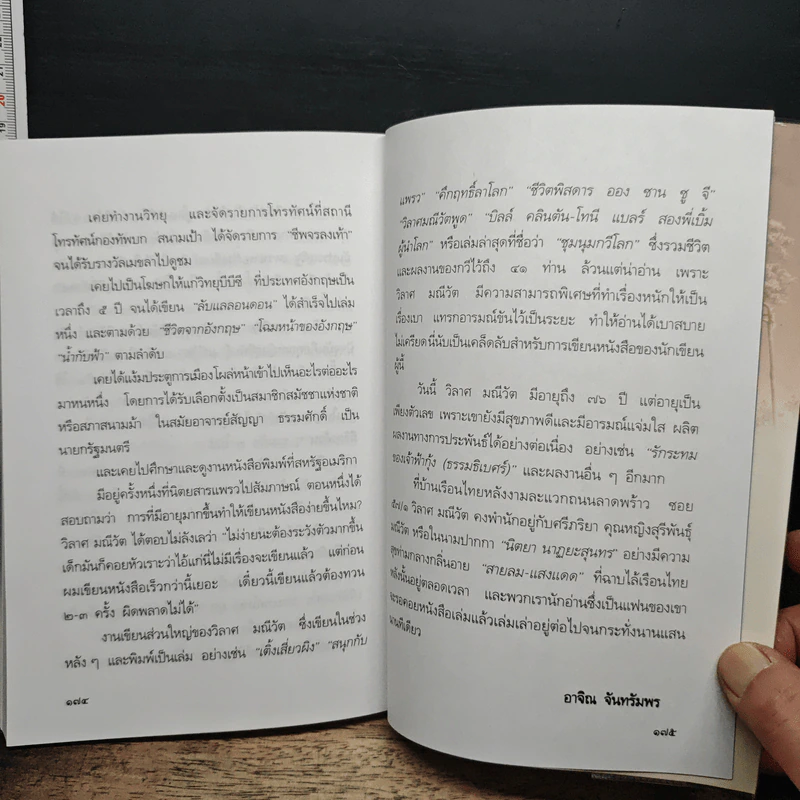 เคยทำงานวิทยุ และจัดรายการโทรทัศน์ที่สถานี
โทรทัศน์กองทัพบก สนามเป้า ได้จัดรายการ "ชีพจรลงเท้า"
จนได้รับรางวัลเมขลาไปดูชม
เคยไปเป็นโฆษกให้แก่วิทยุบีบีซี ที่ประเทศอังกฤษเป็น
เวลาถึง ๕ ปี จนได้เขียน "ลับแลลอนดอน" ได้สำเร็จไปเล่ม
หนึ่ง และตามด้วย "ชีวิตจากอังกฤษ" "โฉมหน้าของอังกฤษ"
"น้ำกับฟ้า" ตามลำดับ
เคยได้แง้มประตูการเมืองโผล่หน้าเข้าไปเห็นอะไรต่ออะไร
มาหนหนึ่ง โดยการได้รับเลือกตั้งเป็นสมาชิกสมัชชาแห่งชาติ
หรือสภาสนามม้า ในสมัยอาจารย์สัญญา ธรรมศักดิ์ เป็น
นายกรัฐมนตรี
และเคยไปศึกษาและดูงานหนังสือพิมพ์ที่สหรัฐอเมริกา
มีอยู่ครั้งหนึ่งที่นิตยสารแพรวไปสัมภาษณ์ ตอนหนึ่งได้
สอบถามว่า การที่มีอายุมากขึ้นทำให้เขียนหนังสือง่ายขึ้นไหม?
วิลาศ มณีวัต ได้ตอบไม่ลังเลว่า "ไม่ง่ายนะต้องระวังตัวมากขึ้น
เด็กมันก็คอยหัวเราะว่าไอ้แก่นี่ไม่มีเรื่องจะเขียนแล้ว แต่ก่อน
ผมเขียนหนังสือเร็วกว่านี้เยอะ เดี๋ยวนี้เขียนแล้วต้องทวน
๒-๓ ครั้ง ผิดพลาดไม่ได้"
งานเขียนส่วนใหญ่ของวิลาศ มณีวัต ซึ่งเขียนในช่วง
หลัง ๆ และพิมพ์เป็นเล่ม อย่างเช่น "เติ้งเสี่ยวผิง" "สนุกกับ
๑๗๔
แพรว" "คึกฤทธิ์ลาโลก" "ชีวิตพิสดาร ออง ซาน ซู จี"
"วิลาศมณีวัตพูด" "บิลล์ คลินตัน-โทนี แบลร์ สองพี่เบิ้ม
ผู้นำโลก" หรือเล่มล่าสุดที่ชื่อว่า "ชุมนุมกวีโลก" ซึ่งรวมชีวิต
และผลงานของกวีไว้ถึง ๔๑ ท่าน ล้วนแต่น่าอ่าน เพราะ
วิลาศ มณีวัต มีความสามารถพิเศษที่ทำเรื่องหนักให้เป็น
เรื่องเบา แทรกอารมณ์ขันไว้เป็นระยะ ทำให้อ่านได้เบาสบาย
ไม่เครียดนี่นับเป็นเคล็ดลับสำหรับการเขียนหนังสือของนักเขียน
ผู้นี้
วันนี้ วิลาศ มณีวัต มีอายุถึง ๗๖ ปี แต่อายุเป็น
เพียงตัวเลข เพราะเขายังมีสุขภาพดีและมีอารมณ์แจ่มใส ผลิต
ผลงานทางการประพันธ์ได้อย่างต่อเนื่อง อย่างเช่น "รักระทม
ของเจ้าฟ้ากุ้ง (ธรรมธิเบศร์)" และผลงานอื่น ๆ อีกมาก
ที่บ้านเรือนไทยหลังงามละแวกถนนลาดพร้าว ซอย
๕๗/๑ วิลาศ มณีวัต คงพำนักอยู่กับศรีภริยา คุณหญิงสุรีพันธุ์
มณีวัต หรือในนามปากกา "นิตยา นาฏยะสุนทร" อย่างมีความ
สุขท่ามกลางกลิ่นอาย "สายลม-แสงแดด" ที่ฉาบไล้เรือนไทย
หลังนั้นอยู่ตลอดเวลา และพวกเรานักอ่านซึ่งเป็นแฟนของเขา
จะรอคอยหนังสือเล่มแล้วเล่มเล่าอยู่ต่อไปจนกระทั่งนานแสน
นานทีเดียว
อาจิณ จันทรัมพร
๑๗๕
19
20
21